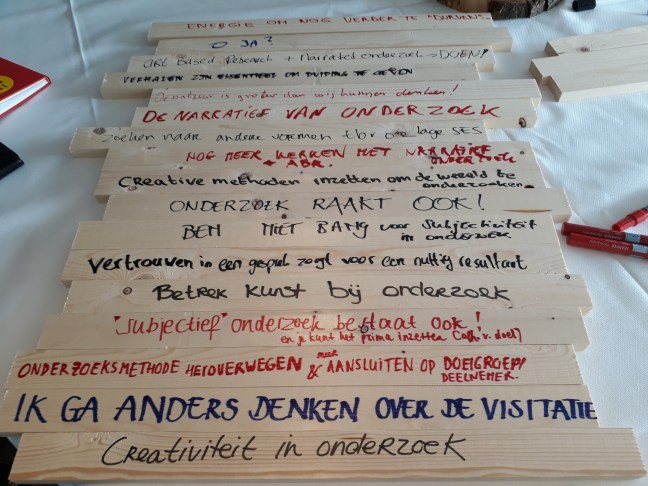 ENERGIE OM NOG VERDER TE "DURVEN".
O JA?
ART Based Research + Narratief onderzoek → DOEN!
VERHALEN ZIJN ESSENTIEEL OM DUIDING TE GEVEN
De natuur is groter dan wij kunnen denken!
DE NARRATIEF VAN ONDERZOEK
Zoeken naar andere vormen tbv lage SES
NOG MEER WERKEN MET NARRATIEF ONDERZOEK
+ ABR.
Creative methoden inzetten om de wereld te
onderzoeken
ONDERZOEK RAAKT OOK!
BEN NIET BANG voor Subjectiviteit
in onderzoek
Vertrouwen in een gesprek zorgt voor een nuttig resultaat
Betrek kunst bij onderzoek
"Subjectief" onderzoek bestaat ook!
en je kunt het prima inzetten (afh. v. doel)
ONDERZOEKSMETHODE HEROVERWEGEN & meer AANSLUITEN OP DOELGROEP/
DEELNEMER.
IK GA ANDERS DENKEN OVER DE VISITATIE
Creativiteit in onderzoek